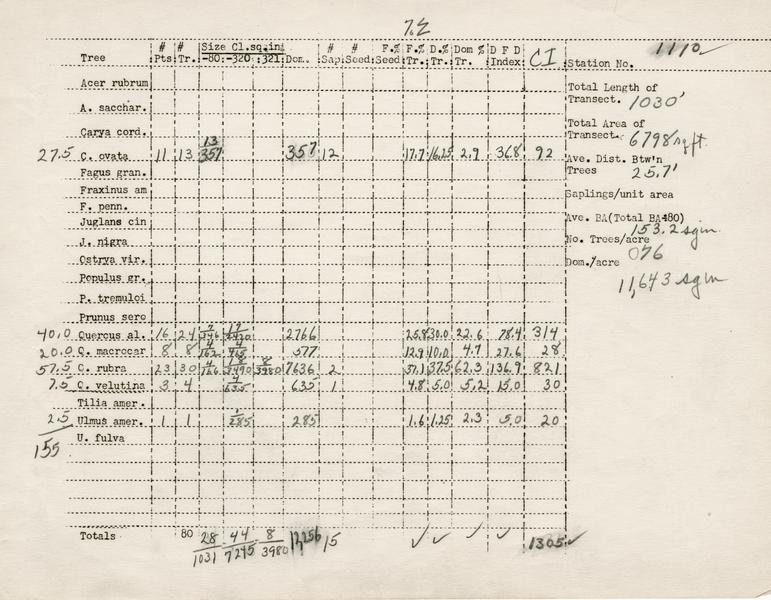 Tree # Pts # Tr. Size Cl.sq.in -80: -320 :321 Dom. # Sap # Seed F.% Seed F.% Tr. D.% Tr. Dom % Tr. D F D Index CI Station No. 1110
Acer rubrum Total Length of Transect. 1030'
A. sacchar. Total Area of
Carya cord. Transect. 6798 sq ft.
27.5 C. ovata 11 13 13 357 357 12 17.7 16.25 2.9 36.8 92 Ave. Dist. Btw'n
Fagus gran. Trees 25.7'
Fraxinus am Saplings/unit area
F. penn.
Juglans cin Ave. BA(Total BA÷80) 153.2 sq in.
J. nigra No. Trees/acre 076
Ostrya vir. Dom./acre 11,643 sq in
Populus gr.
P. tremuloi
Prunus sero
40.0 Quercus al. 16 24 2766 25.8 30.0 22.6 78.4 314
20.0 Q. macrocar 8 8 4 162 4 415 577 12.9 10.0 4.7 27.6 28
57.5 Q. rubra 23 30 4 166 18 3490 8 3980 7636 2 37.1 37.5 62.3 136.9 821
7.5 Q. velutina 3 4 4 635 635 1 4.8 5.0 5.2 15.0 30
Tilia amer.
2.5 Ulmus amer. 1 1 1 285 285 1.6 1.25 2.3 5.0 20
155 U. fulva
Totals 80 28 1031 44 7245 8 3980 12,256 15 1305